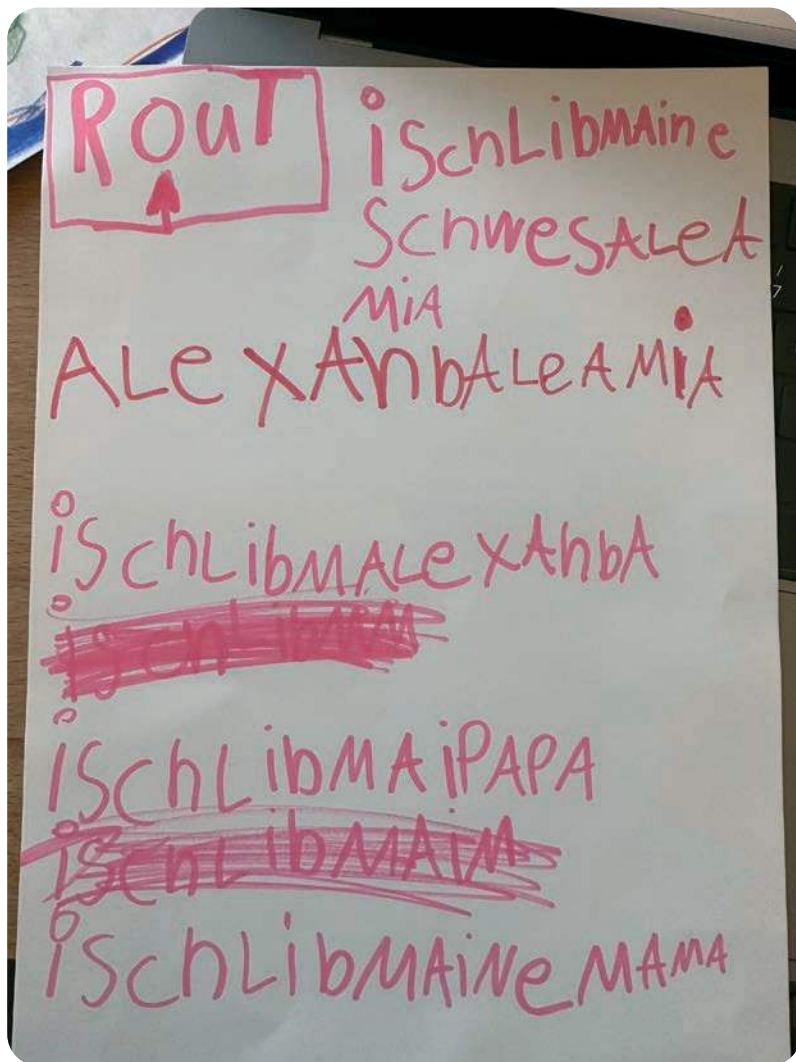 ROUT
iSchLibMAine
SchwesALeA
MiA
ALexAnbALeAMiA
iSchLibMALexAnbA
iSchLibMM
iSchLibMAiPAPA
iSchLibMAiM
iSchLibMAiNeMAMA